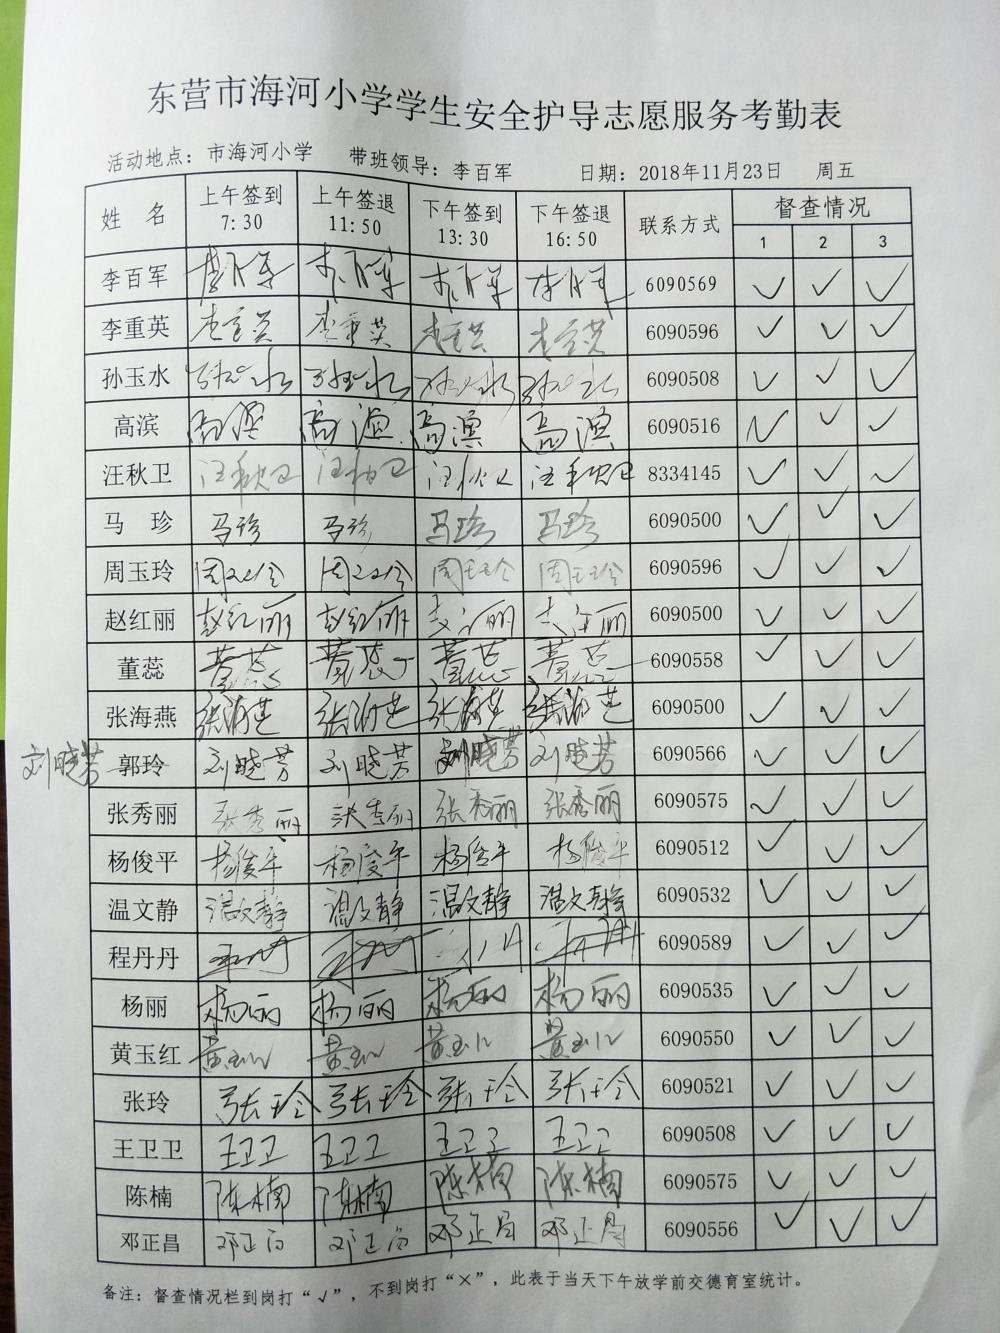 东营市海河小学学生安全护导志愿服务考勤表
活动地点：市海河小学 带班领导：李百军 日期：2018年11月23日 周五
姓 名 上午签到 7:30 上午签退 11:50 下午签到 13:30 下午签退 16:50 联系方式 督查情况
1 2 3
李百军 6090569 ✓ ✓ ✓
李重英 李重英 李重英 李重英 李重英 6090596 ✓ ✓ ✓
孙玉水 6090508 ✓ ✓ ✓
高滨 高滨 高滨 高滨 高滨 6090516 ✓ ✓ ✓
汪秋卫 汪秋卫 汪秋卫 汪秋卫 汪秋卫 8334145 ✓ ✓ ✓
马 珍 马珍 马珍 马珍 马珍 6090500 ✓ ✓ ✓
周玉玲 周玉玲 周玉玲 周玉玲 周玉玲 6090596 ✓ ✓ ✓
赵红丽 赵红丽 赵红丽 赵红丽 赵红丽 6090500 ✓ ✓ ✓
董蕊 董蕊 董蕊 董蕊 董蕊 6090558 ✓ ✓ ✓
张海燕 张海燕 张海燕 张海燕 张海燕 6090500 ✓ ✓ ✓
刘晓芳 郭玲 刘晓芳 刘晓芳 刘晓芳 刘晓芳 6090566 ✓ ✓ ✓
张秀丽 张秀丽 张秀丽 张秀丽 张秀丽 6090575 ✓ ✓ ✓
杨俊平 杨俊平 杨俊平 杨俊平 杨俊平 6090512 ✓ ✓ ✓
温文静 温文静 温文静 温文静 温文静 6090532 ✓ ✓ ✓
程丹丹 6090589 ✓ ✓ ✓
杨丽 杨丽 杨丽 杨丽 杨丽 6090535 ✓ ✓ ✓
黄玉红 黄玉红 黄玉红 黄玉红 黄玉红 6090550 ✓ ✓ ✓
张玲 张玲 张玲 张玲 张玲 6090521 ✓ ✓ ✓
王卫卫 王卫卫 王卫卫 王卫卫 王卫卫 6090508 ✓ ✓ ✓
陈楠 陈楠 陈楠 陈楠 陈楠 6090575 ✓ ✓ ✓
邓正昌 邓正昌 邓正昌 邓正昌 邓正昌 6090556 ✓ ✓ ✓
备注：督查情况栏到岗打“√”，不到岗打“×”，此表于当天下午放学前交德育室统计。